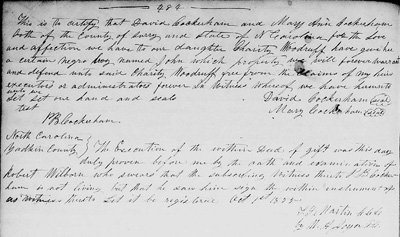 282
This is to certify that David Cockerham and Mary Ann Cockerham
both of the County of Surry and State of N Carolina for the Love
and affection we have to our daughter Charity Woodruff have given her
a certain negro boy named John which property we will forever warrant
and defend unto said Charity Woodruff free from the claims of my heirs
executors or administrators forever In Witness Whereof, we have hereunto
set our hand and seals
David Cockerham (seal)
test
Mary Cockerham (seal)
Cockerham.
North Carolina }
Yadkin County } The Execution of the within Deed of gift was this day
duly proven before me by the oath and examination of
Robert Wilborn who swears that the subscribing Witness thereto Cocker-
ham is not living but that he saw him sign the within instrument
as witness hereto Let it be registered Oct 1st
Martin
by